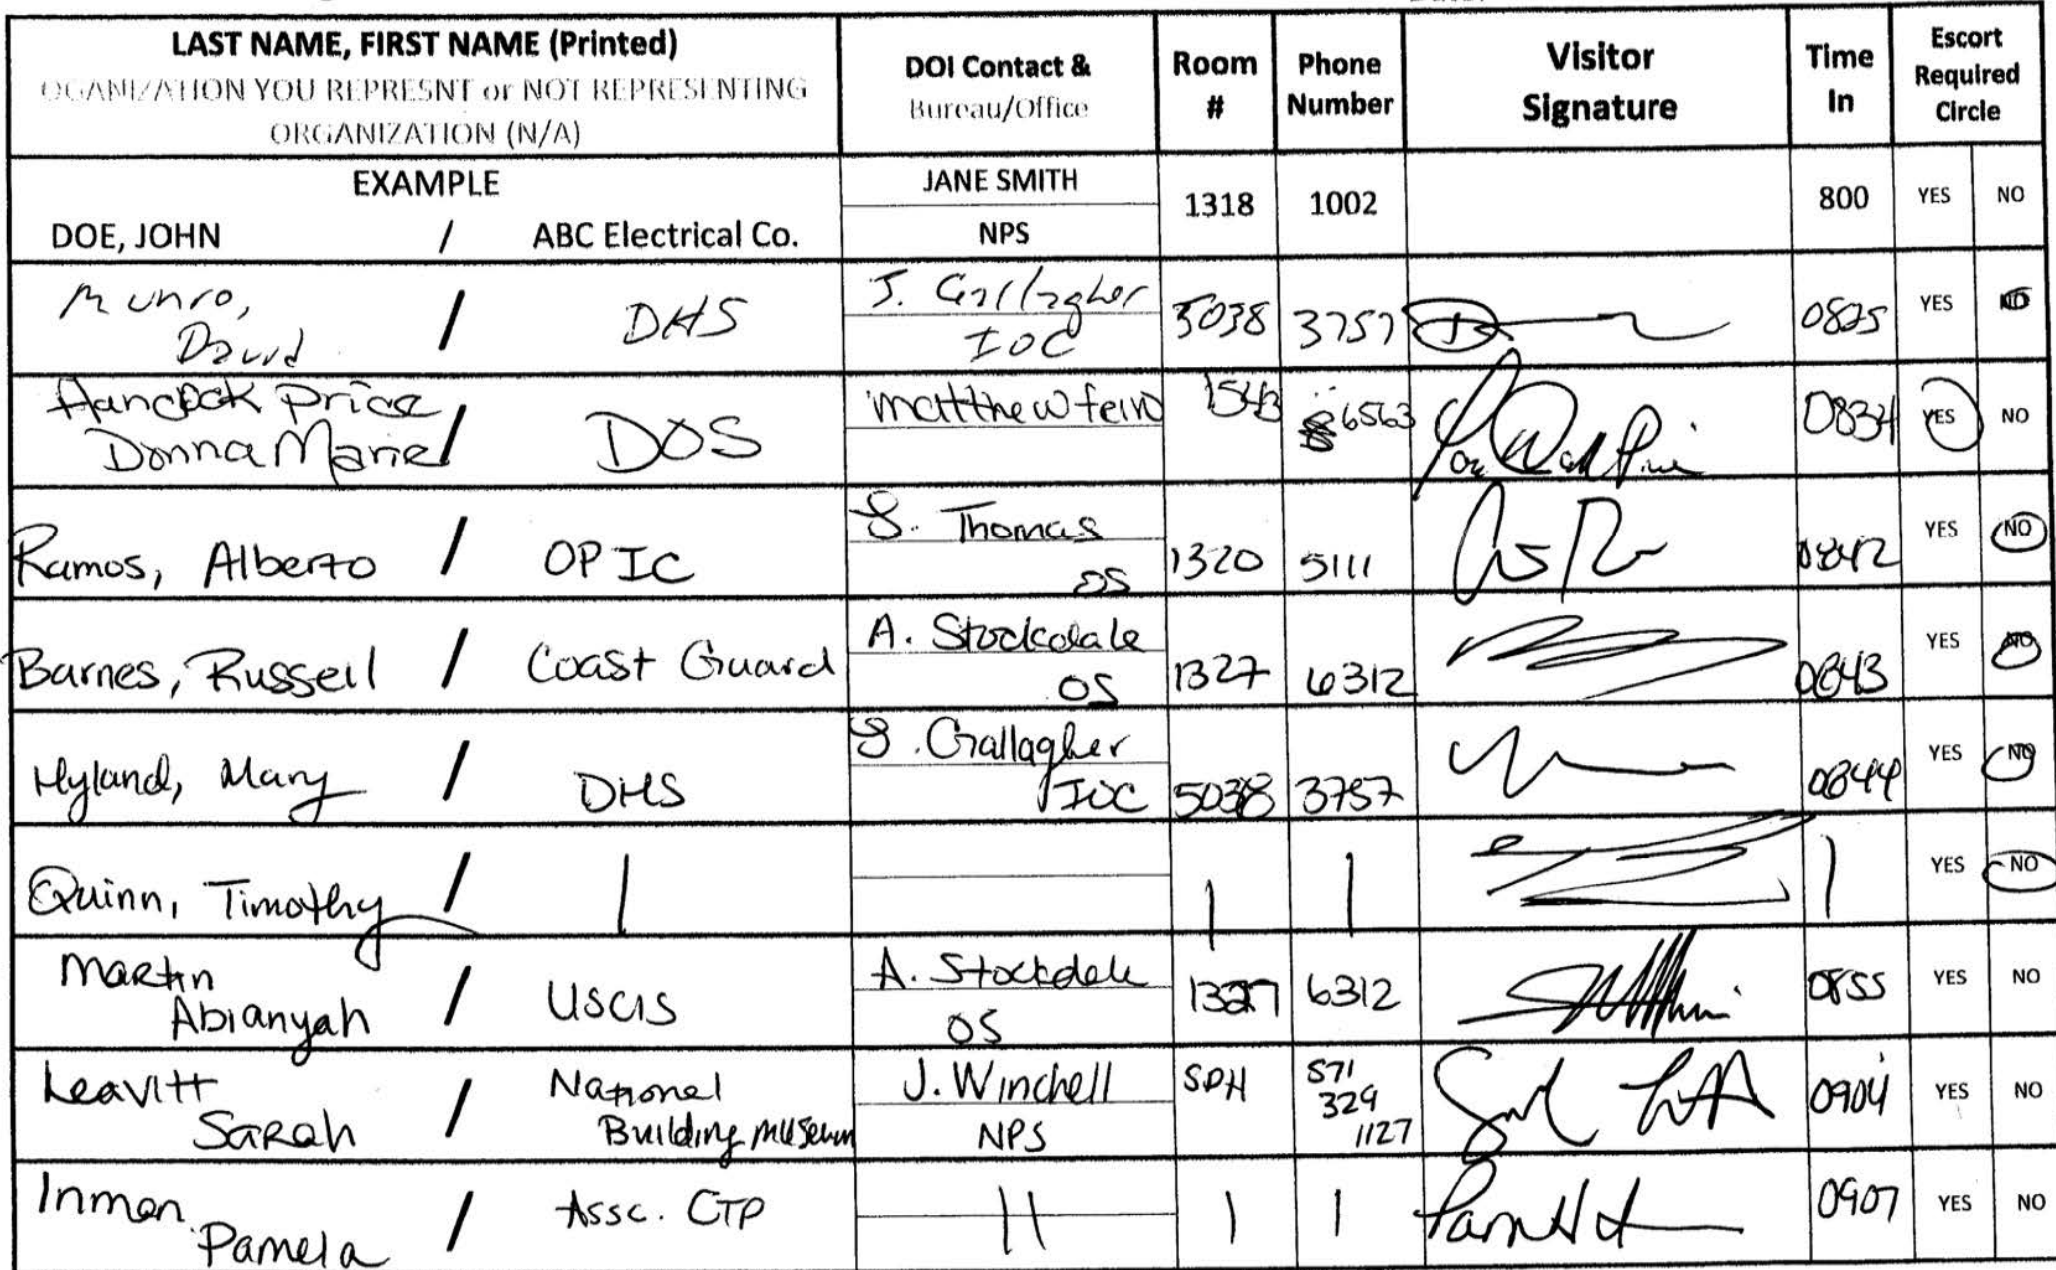 LAST NAME, FIRST NAME (Printed)
OGANIZATION YOU REPRESNT or NOT REPRESENTING
ORGANIZATION (N/A)
DOI Contact &
Bureau/Office
Room
#
Phone
Number
Visitor
Signature
Time
In
Escort
Required
Circle
EXAMPLE
DOE, JOHN / ABC Electrical Co.
JANE SMITH
NPS
1318 1002 800 YES NO
Munro,
David / DHS
J. Gallagher
IOC
5038 3757 0825 YES NO
Hancock Price
Donna Marie / DOS
matthew fein
1543 6563 0834 YES NO
Ramos, Alberto / OPIC
S. Thomas
OS
1320 5111 0842 YES NO
Barnes, Russell / Coast Guard
A. Stockdale
OS
1327 6312 0843 YES NO
Hyland, Mary / DHS
J. Gallagher
IOC
5038 3757 0844 YES NO
Quinn, Timothy / YES NO
Martin
Abianyah / USCIS
A. Stockdale
OS
1327 6312 0855 YES NO
Leavitt
Sarah / National
Building Museum
J. Winchell
NPS
SPH
571
329
1127
0904 YES NO
Inman
Pamela / Assc. CTP
0907 YES NO